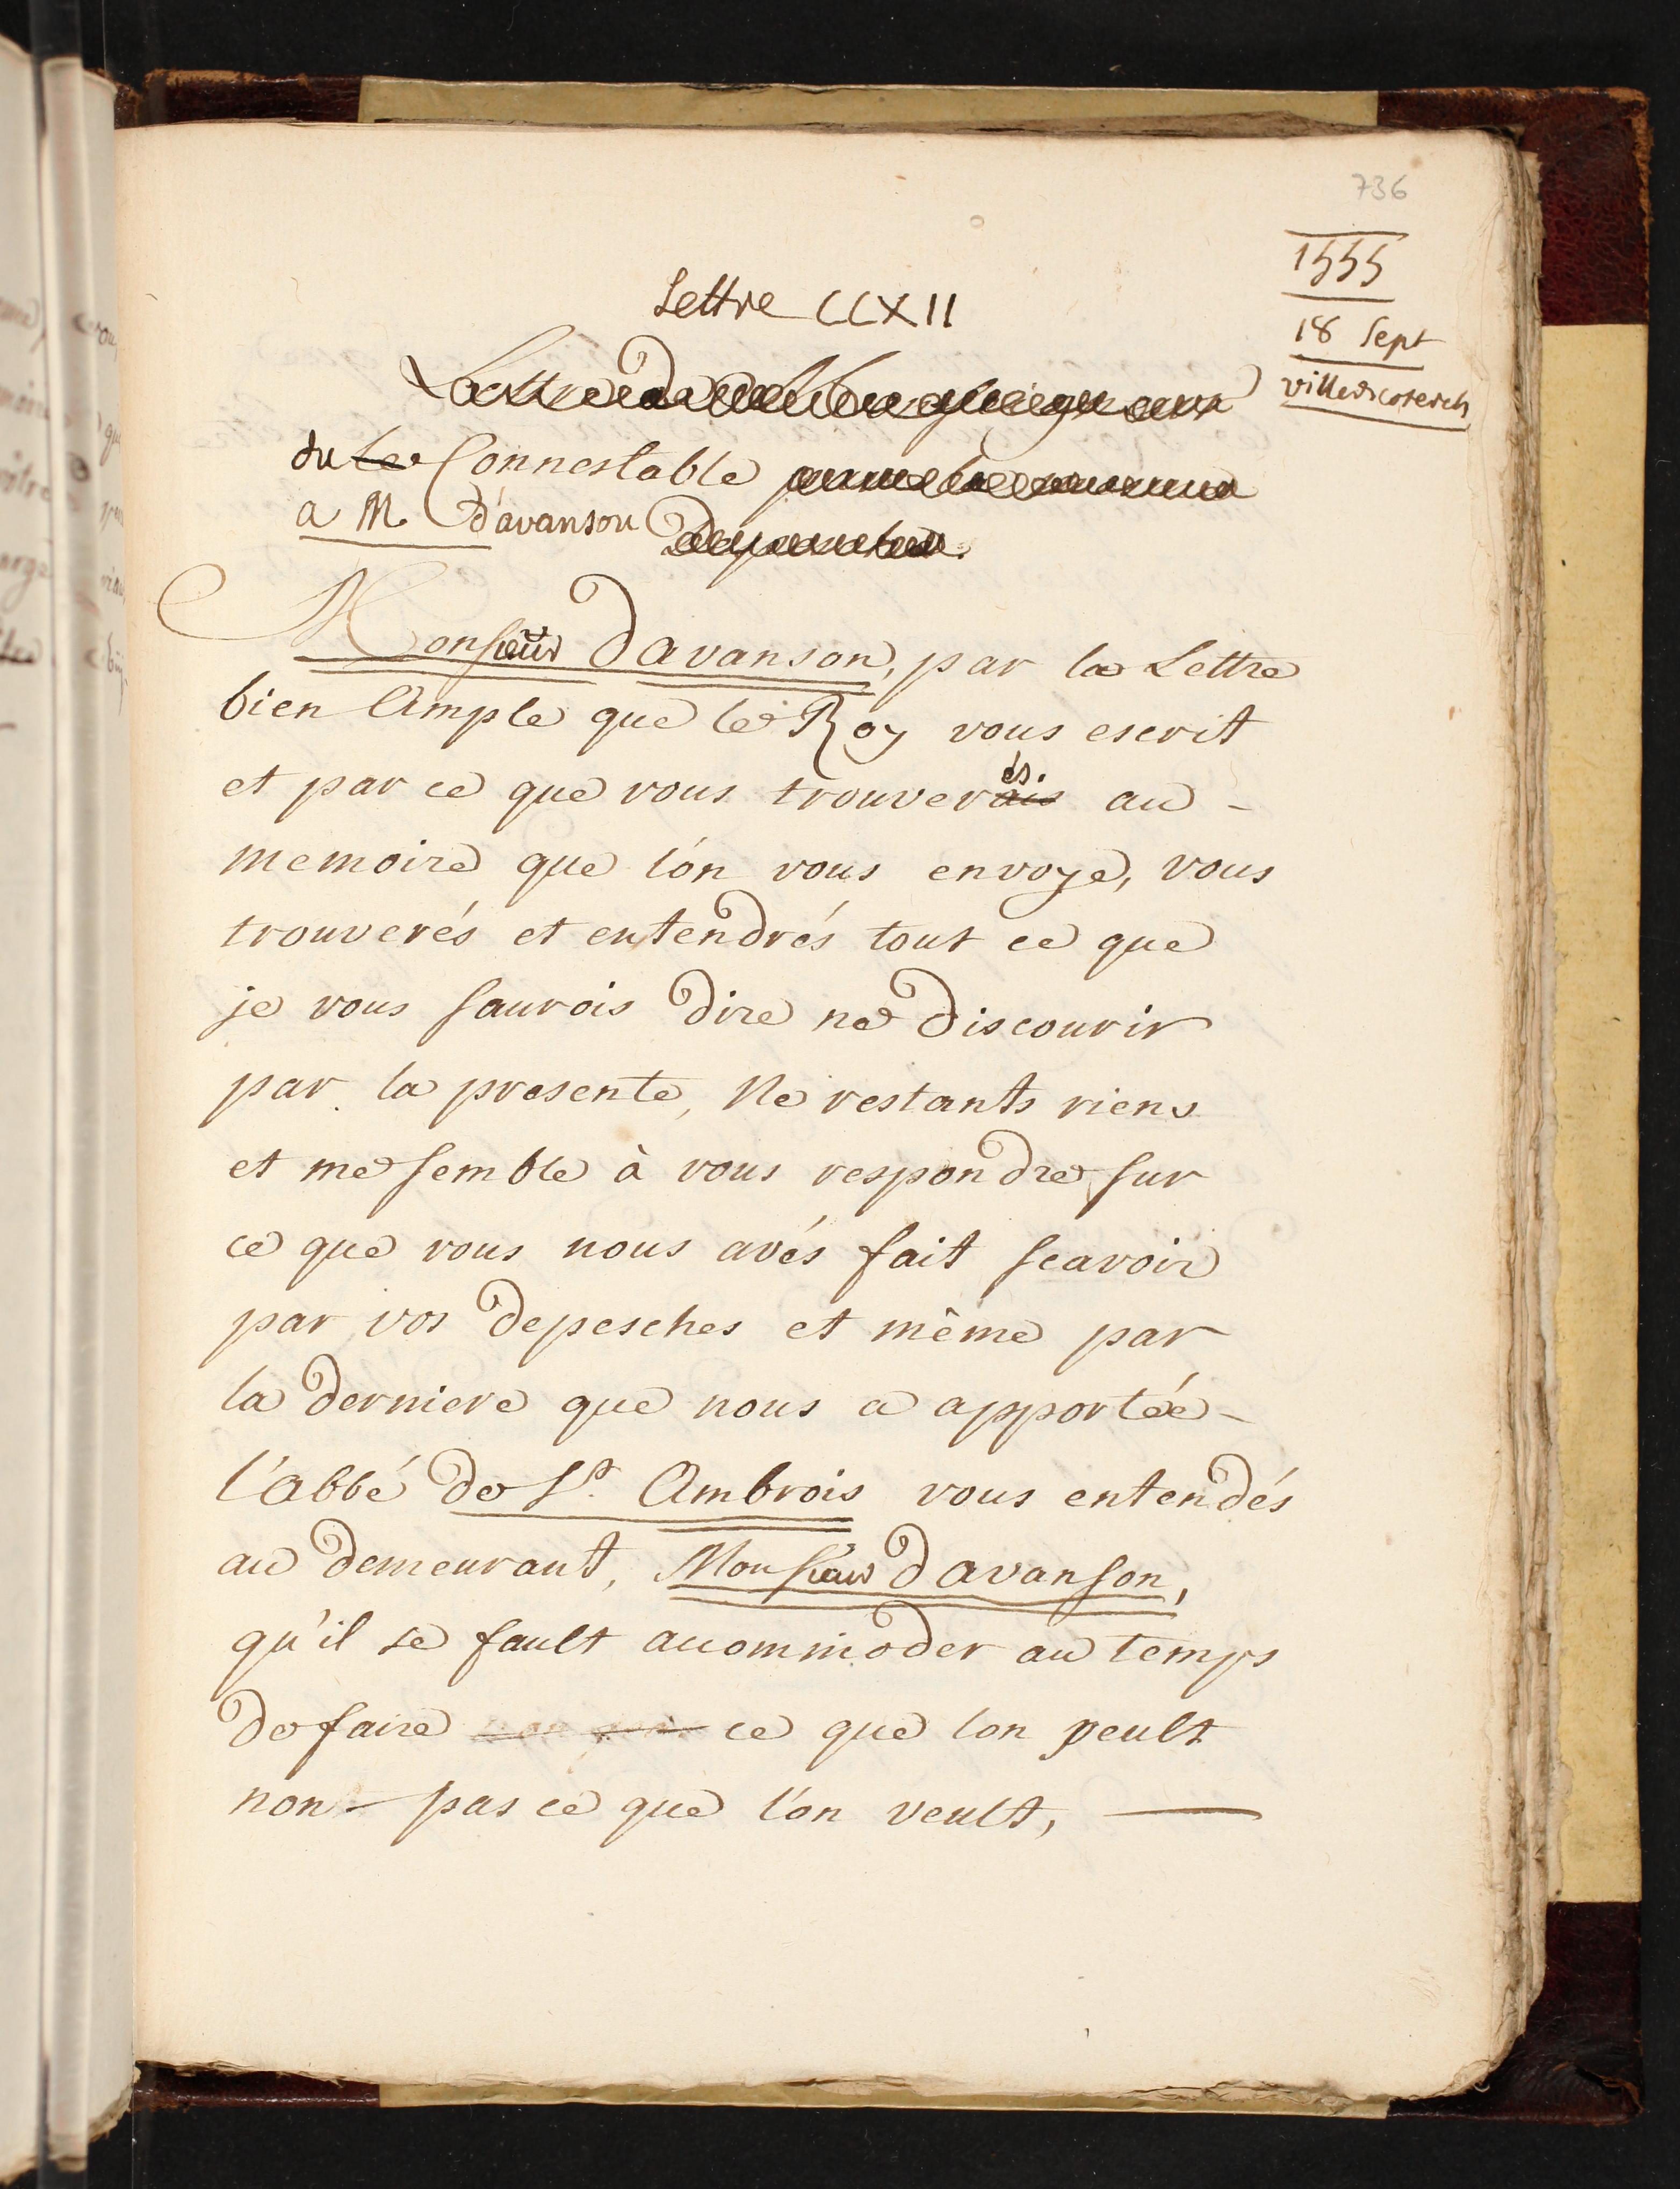 736
1555
18 Sept
villerscoterch
Lettre CCXII
du le Connestable
a M. d'avanson
Monsieur Davanson, par la Lettre
bien Ample que le Roy vous escrit
et par ce que vous trouverais és. au -
memoire que l'on vous envoye, vous
trouverés et entendrés tout ce que
je vous saurois dire ne discourir
par la presente, Ne restants riens
et me semble à vous respondre sur
ce que vous nous avés fait scavoir
par vos depesches et même par
la derniere que nous a apportée -
l'abbé de St. Ambrois vous entendés
au demeurant, Monsieur Davanson,
qu'il se fault acommoder au temps
de faire ce que lon peult
non - pas ce que l'on veult, —